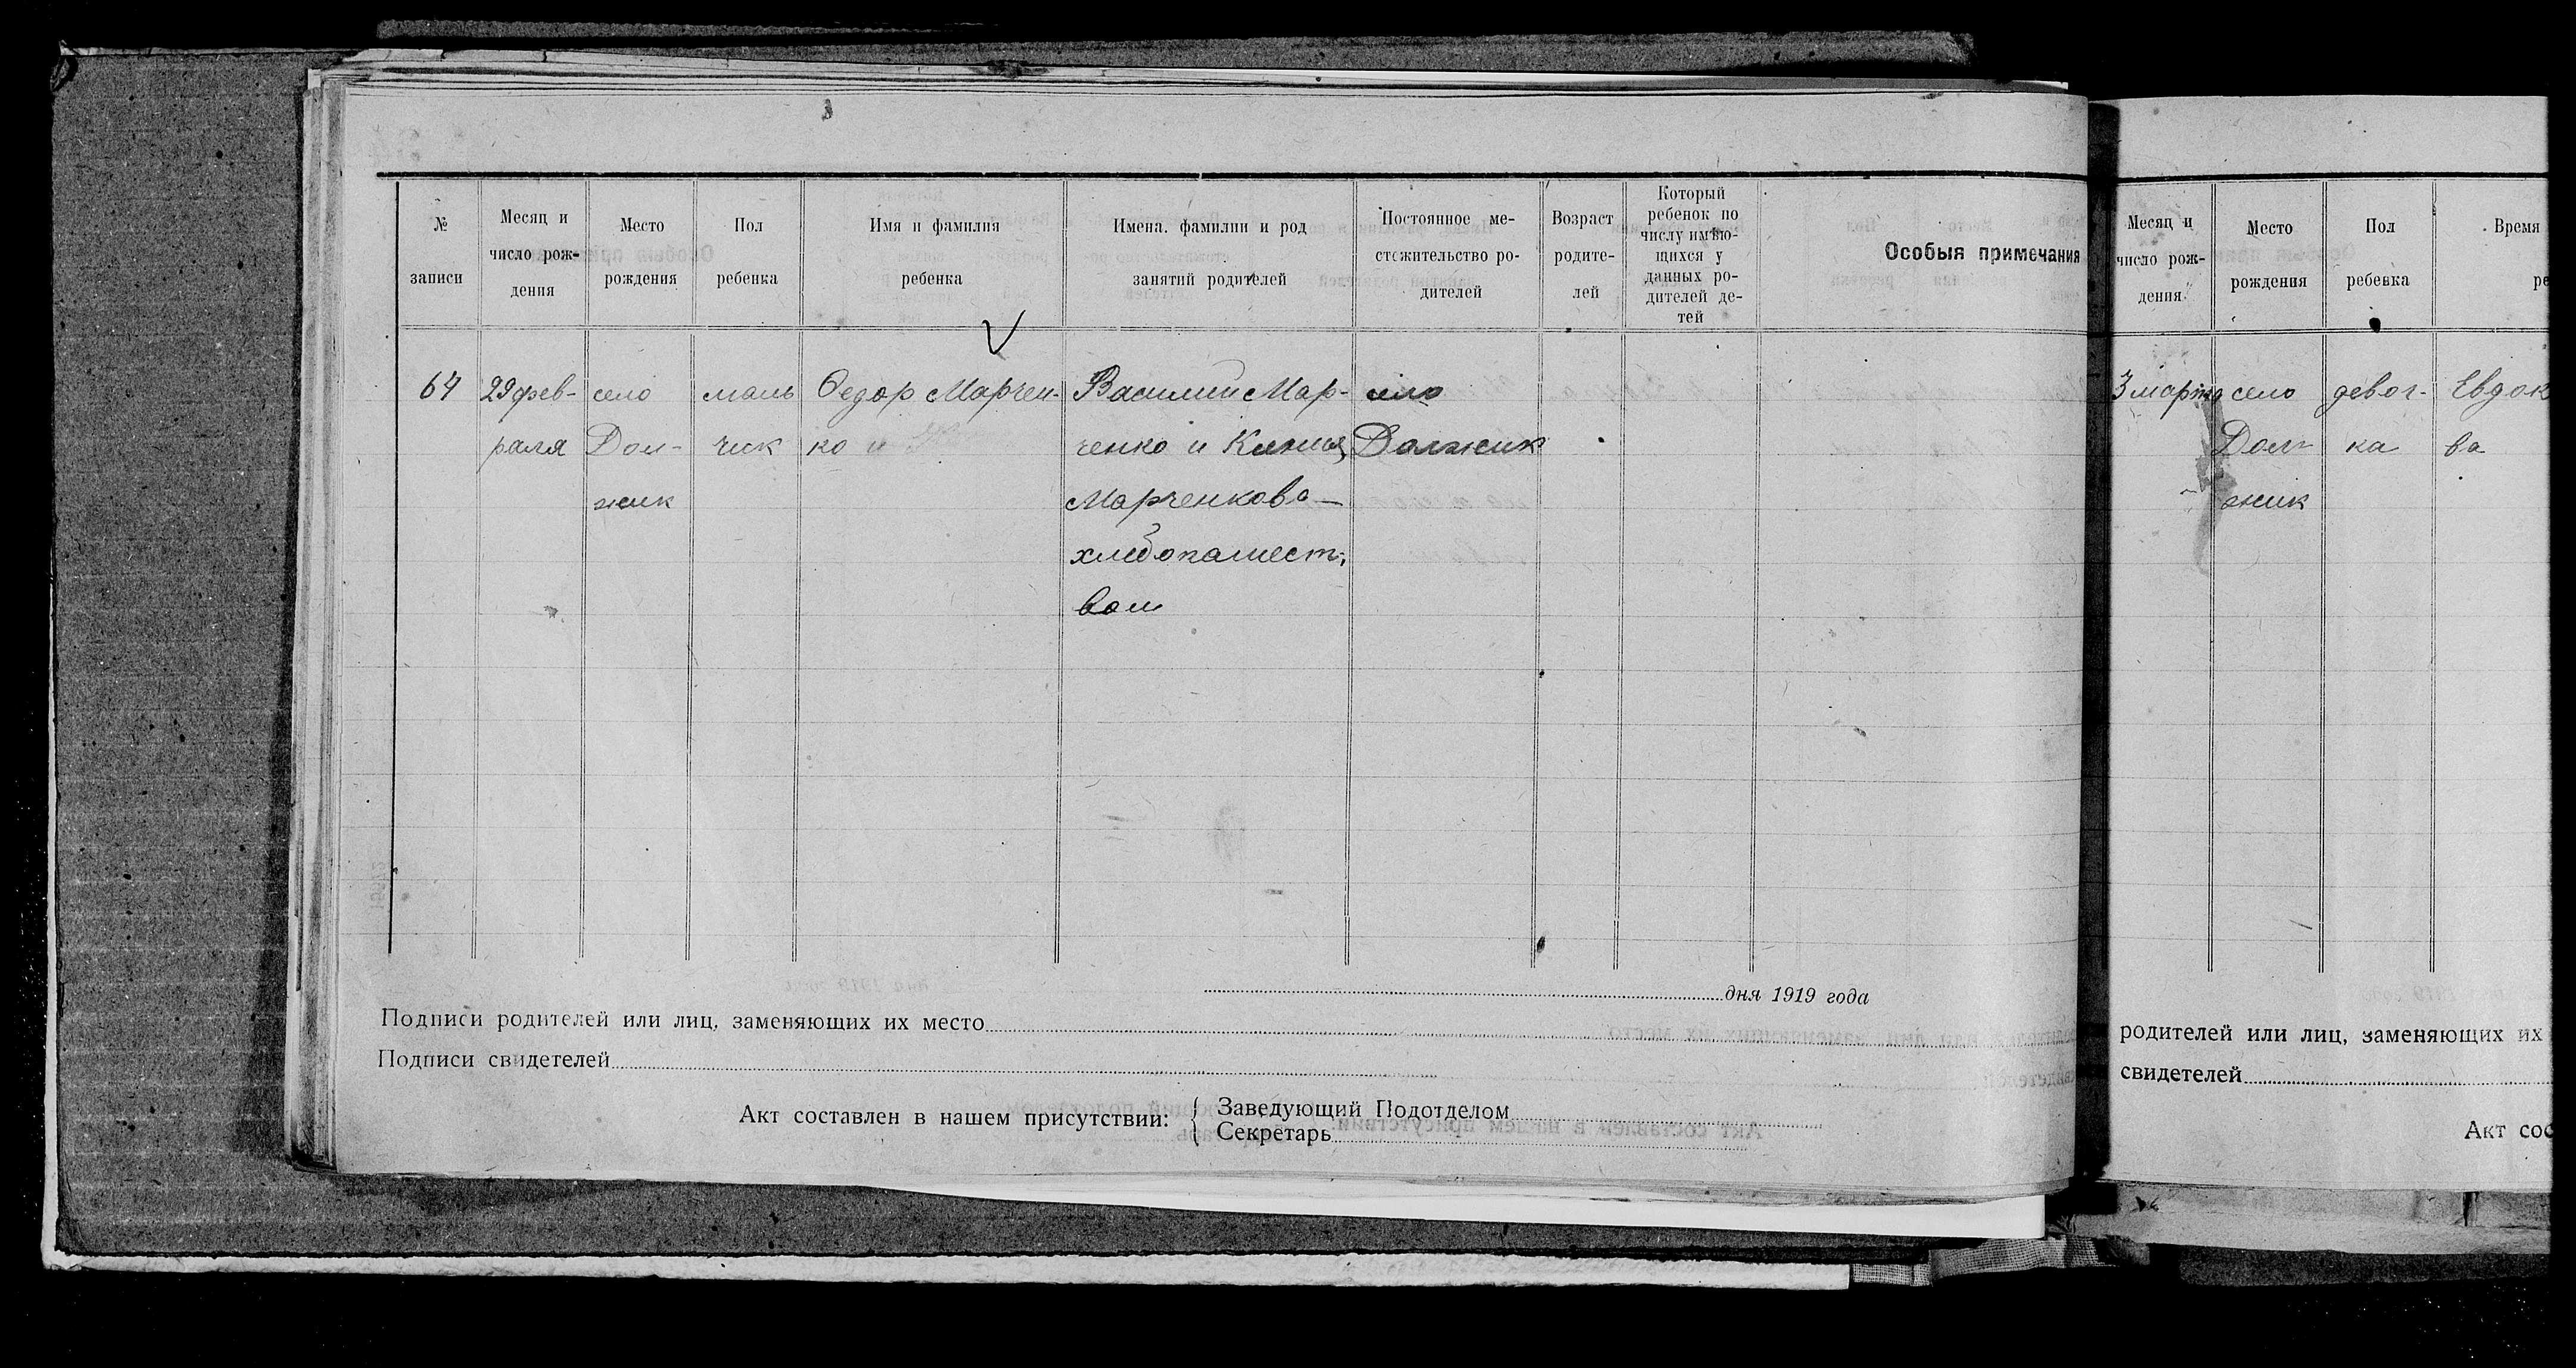 № записи
Месяц и число рождения
Место рождения
Пол ребенка
Имя и фамилия ребенка
Имена, фамилии и род занятий родителей
Постоянное местожительство родителей
Возраст родителей
Который ребенок по числу имѣющихся у данных родителей детей
Особыя примечания
64
29 фев-
раля
село
Дол-
жик
маль
чик
Федор Марчен-
ко и
Василий Мар-
ченко и
Марченкова —
хлебопашест-
вом
село
Должик
дня 1919 года
Подписи родителей или лиц, заменяющих их место
Подписи свидетелей
Акт составлен в нашем присутствии:
Заведующий Подотделом
Секретарь
Месяц и число рождения
Место рождения
Пол ребенка
Время
ре
3 марта
село
Дол-
жик
девоч-
ка
Евдок
ва
родителей или лиц, заменяющих их
свидетелей
Акт сос